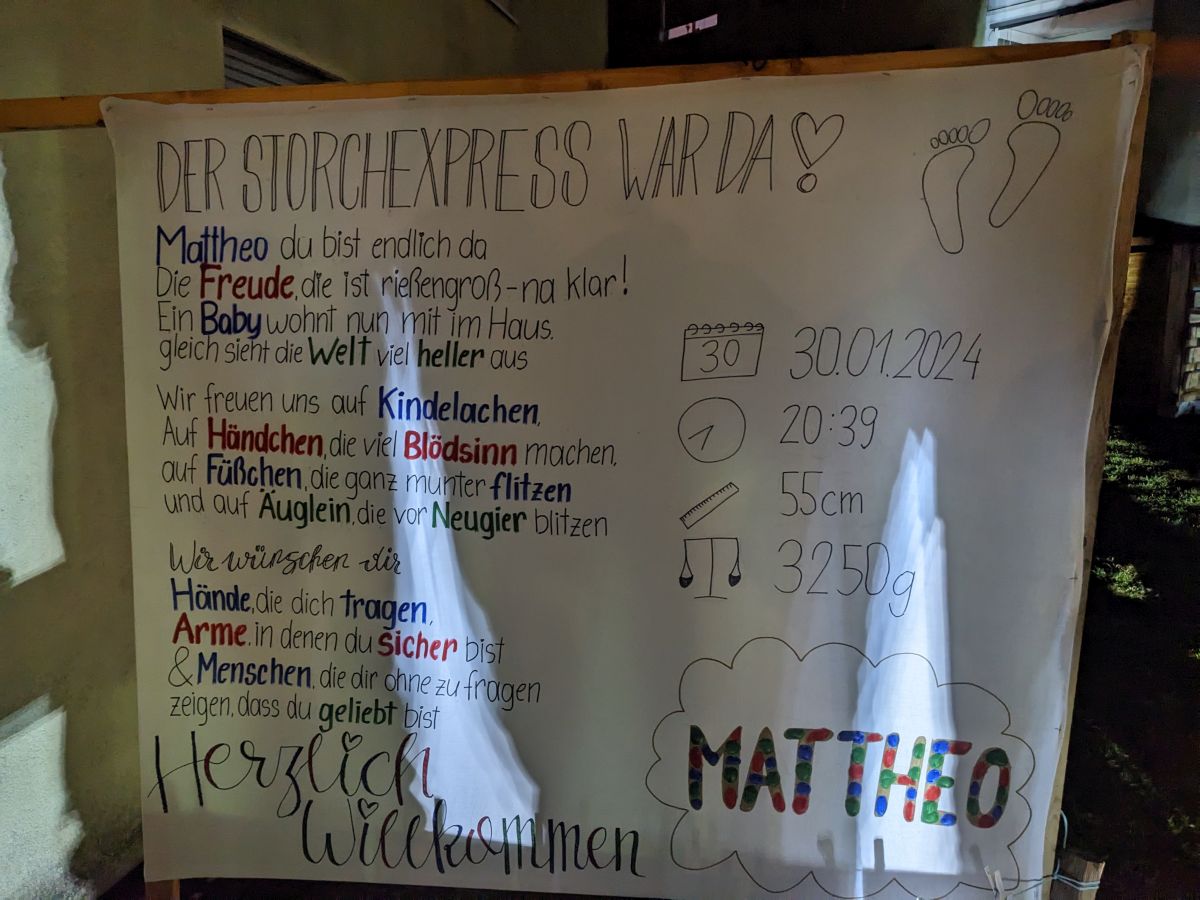 DER STORCHEXPRESS WAR DA!
Mattheo du bist endlich da
Die Freude, die ist rießengroß - na klar!
Ein Baby wohnt nun mit im Haus.
gleich sieht die Welt viel heller aus
Wir freuen uns auf Kindelachen,
Auf Händchen, die viel Blödsinn machen,
auf Füßchen, die ganz munter flitzen
und auf Äuglein, die vor Neugier blitzen
Wir wünschen dir
Hände, die dich tragen,
Arme, in denen du sicher bist
& Menschen, die dir ohne zu fragen
zeigen, dass du geliebt bist
Herzlich
Willkommen
30
30.01.2024
20:39
55cm
3250g
MATTHEO